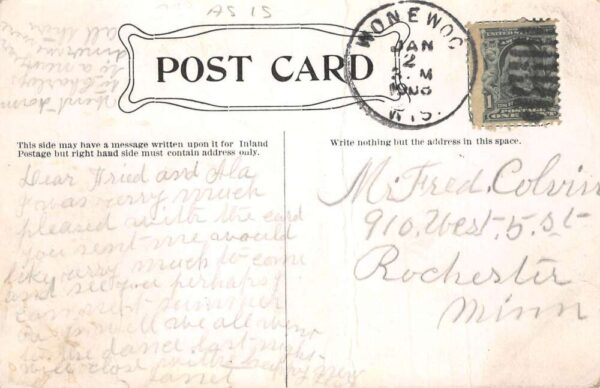 AS IS
POST CARD
WONEWOC
JAN
2
M
1908
WIS.
ONE CENT
This side may have a message written upon it for Inland
Postage but right hand side must contain address only.
Write nothing but the address in this space.
Dear Fried and Ala
I was varry much
pleased with the card
you sent me would
like varry much to come
and see you perhaps I
can next summer
well we all went
to the dance last night
will close with
Mr. Fred. Colvin
910. West. 5. st
Rochester
Minn